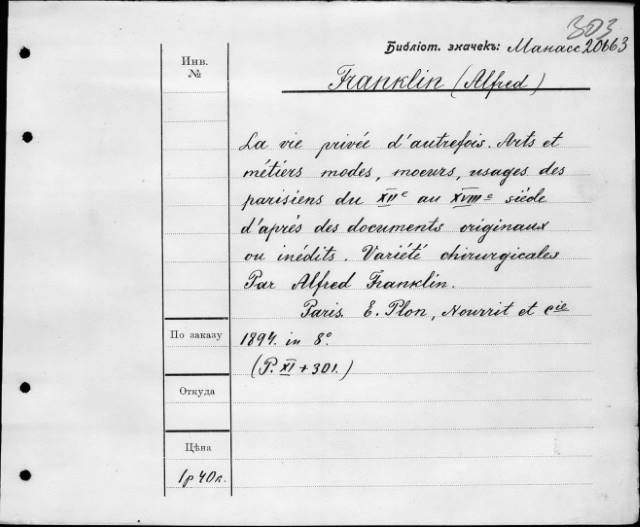 303
Библіот. значекъ: Манасс 20663
Инв.
№
Franklin (Alfred)
La vie privée d'autrefois. Arts et
métiers modes, moeurs, usages des
parisiens du XIIe au XVIIIe siécle
d'aprés des documents originaux
ou inédits. Variété chirurgicales
Par Alfred Franklin.
Paris. E. Plon, Nourrit et Cie
По заказу
1894. in 8°.
(P. XI + 301.)
Откуда
Цѣна
1р 40к.